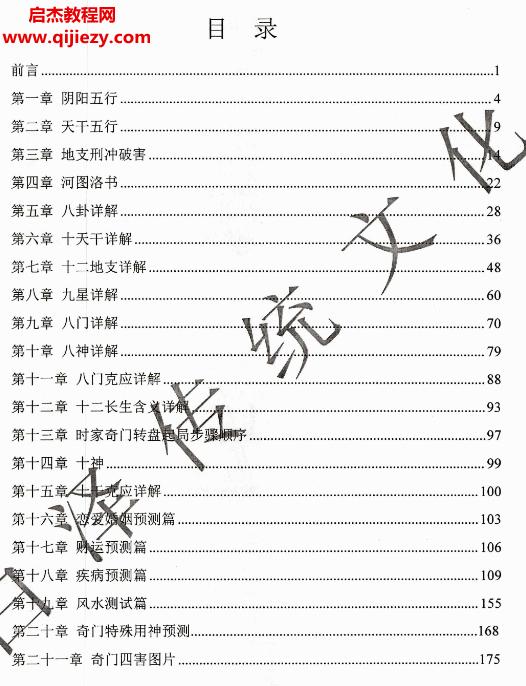 启杰教程网
www.qijiezy.com
目 录
前言 1
第一章 阴阳五行 4
第二章 天干五行 9
第三章 地支刑冲破害 14
第四章 河图洛书 22
第五章 八卦详解 28
第六章 十天干详解 36
第七章 十二地支详解 48
第八章 九星详解 60
第九章 八门详解 70
第十章 八神详解 79
第十一章 八门克应详解 88
第十二章 十二长生含义详解 93
第十三章 时家奇门转盘起局步骤顺序 97
第十四章 十神 99
第十五章 十干克应详解 100
第十六章 恋爱婚姻预测篇 103
第十七章 财运预测篇 106
第十八章 疾病预测篇 109
第十九章 风水测试篇 155
第二十章 奇门特殊用神预测 168
第二十一章 奇门四害图片 175
泽传统文化